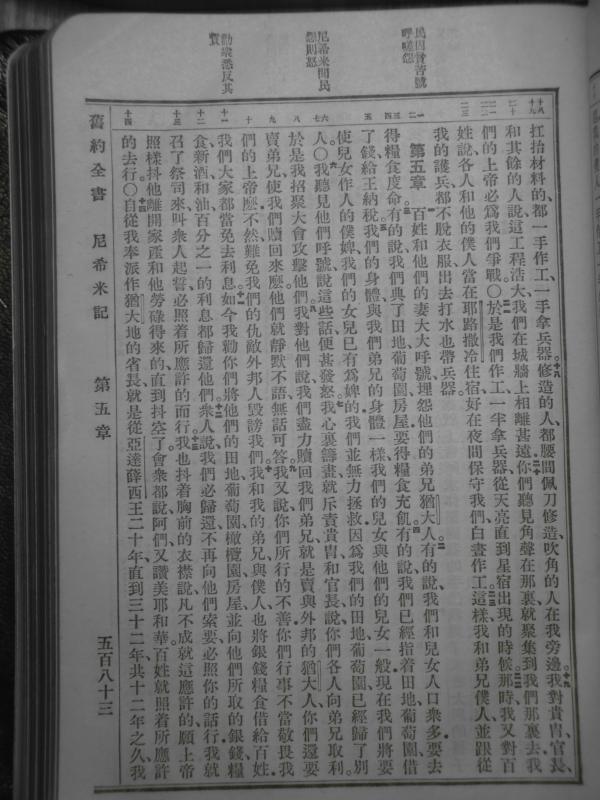 民因貲苦號
呼嗟怨
尼希米聞民
怨則怒
勸衆悉反其
貲
扛抬材料的都一手作工、一手拿兵器修造的人、都腰間佩刀修造、吹角的人在我旁邊我對貴冑官長、
和其餘的人說這工程浩大我們在城牆上相離甚遠你們聽見角聲在那裏就聚集到我們那裏去我
們的上帝必爲我們爭戰○於是我們作工一半拿兵器從天亮直到星宿出現的時候那時我又對百
姓說各人和他的僕人當在耶路撒冷住宿好在夜間保守我們白晝作工這樣我和弟兄僕人並跟從
我的護兵都不脫衣服出去打水也帶兵器
第五章 百姓和他們的妻大大呼號埋怨他們的弟兄猶大人有的說我們和兒女人口衆多要去
得糧食度命有的說我們典了田地葡萄園房屋要得糧食充飢有的說我們已經指着田地葡萄園借
了錢給王納稅我們的身體與我們弟兄的身體一樣我們的兒女與他們的兒女一般現在我們將要
使兒女作人的僕婢我們的女兒已有爲婢的我們並無力拯救因爲我們的田地葡萄園已經歸了別
人○我聽見他們呼號說這些話便甚發怒我心裏籌畫就斥責貴冑和官長說你們各人向弟兄取利
於是我招聚大會攻擊他們我對他們說我們盡力贖回我們弟兄就是賣與外邦的猶大人你們還要
賣弟兄使我們贖回來麼他們就靜默不語無話可答我又說你們所行的不善你們行事不當敬畏我
們的上帝麼不然難免我們的仇敵外邦人毀謗我們我和我的弟兄與僕人也將銀錢糧食借給百姓
我們大家都當免去利息如今我勸你們將他們的田地葡萄園橄欖園房屋並向他們所取的銀錢糧
食新酒和油百分之一的利息都歸還他們衆人說我們必歸還不再向他們索要必照你的話行我就
召了祭司來叫衆人起誓必照着所應許的而行我也抖着胸前的衣襟說凡不成就這應許的願上帝
照樣抖他離開家產和他勞碌得來的直到抖空了會衆都說阿們又讚美耶和華百姓就照着所應許
的去行○自從我奉派作猶大地的省長就是從亞達薛西王二十年直到三十二年共十二年之久我
舊約全書 尼希米記 第五章 五百八十三